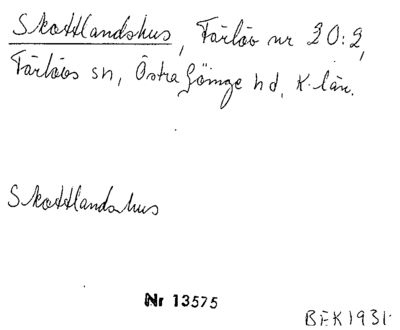 Skottlandshus, Färlöv nr 20:2,
Färlövs sn, Östra Göinge hd, K. län.
Skottlandshus
Nr 13575
BEK 1931